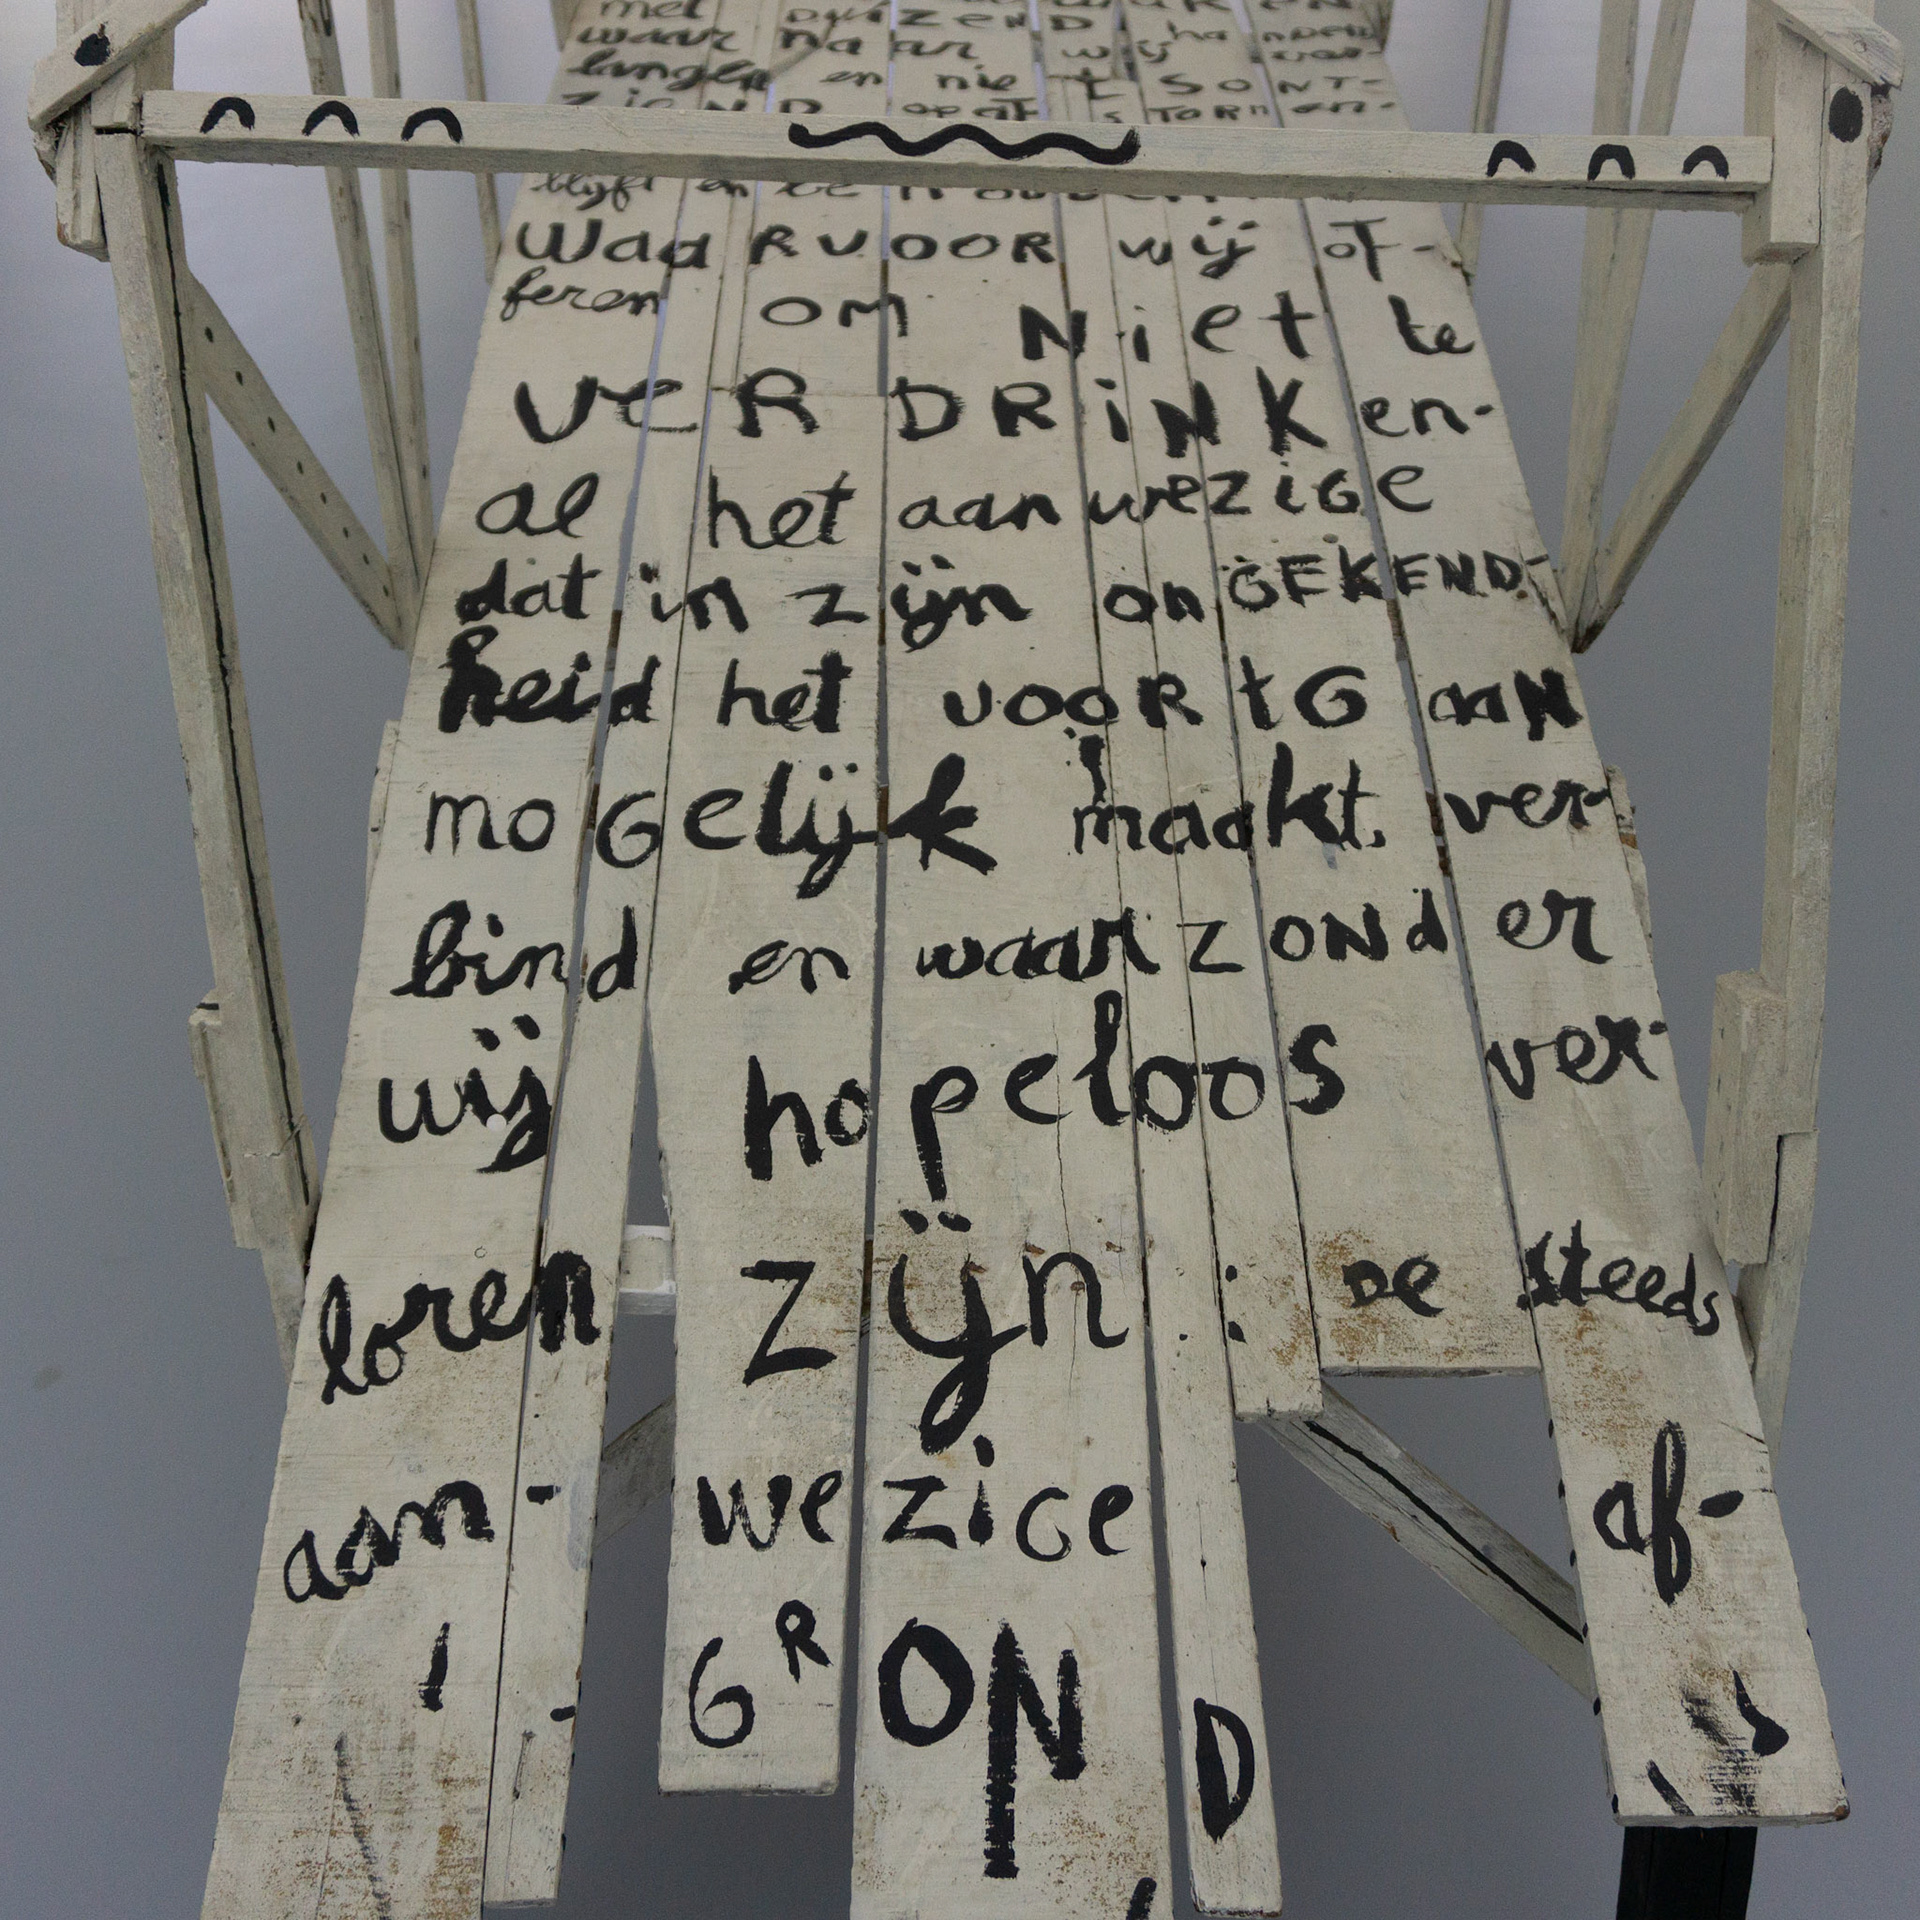 met DUIZEND
waar naar wij
en niet SONT-
blijft en te HOUDEN
waaRVOOR wij of-
feren OM Niet te
VeRDRiNKen-
al het aanwezige
dat in zijn onGEKEND-
heid het VOORtGaaN
moGelijk maakt, ver-
bind en waar zONd er
wij hopeloos ver-
loren zijn : De steeds
aan- wezige af-
GROND